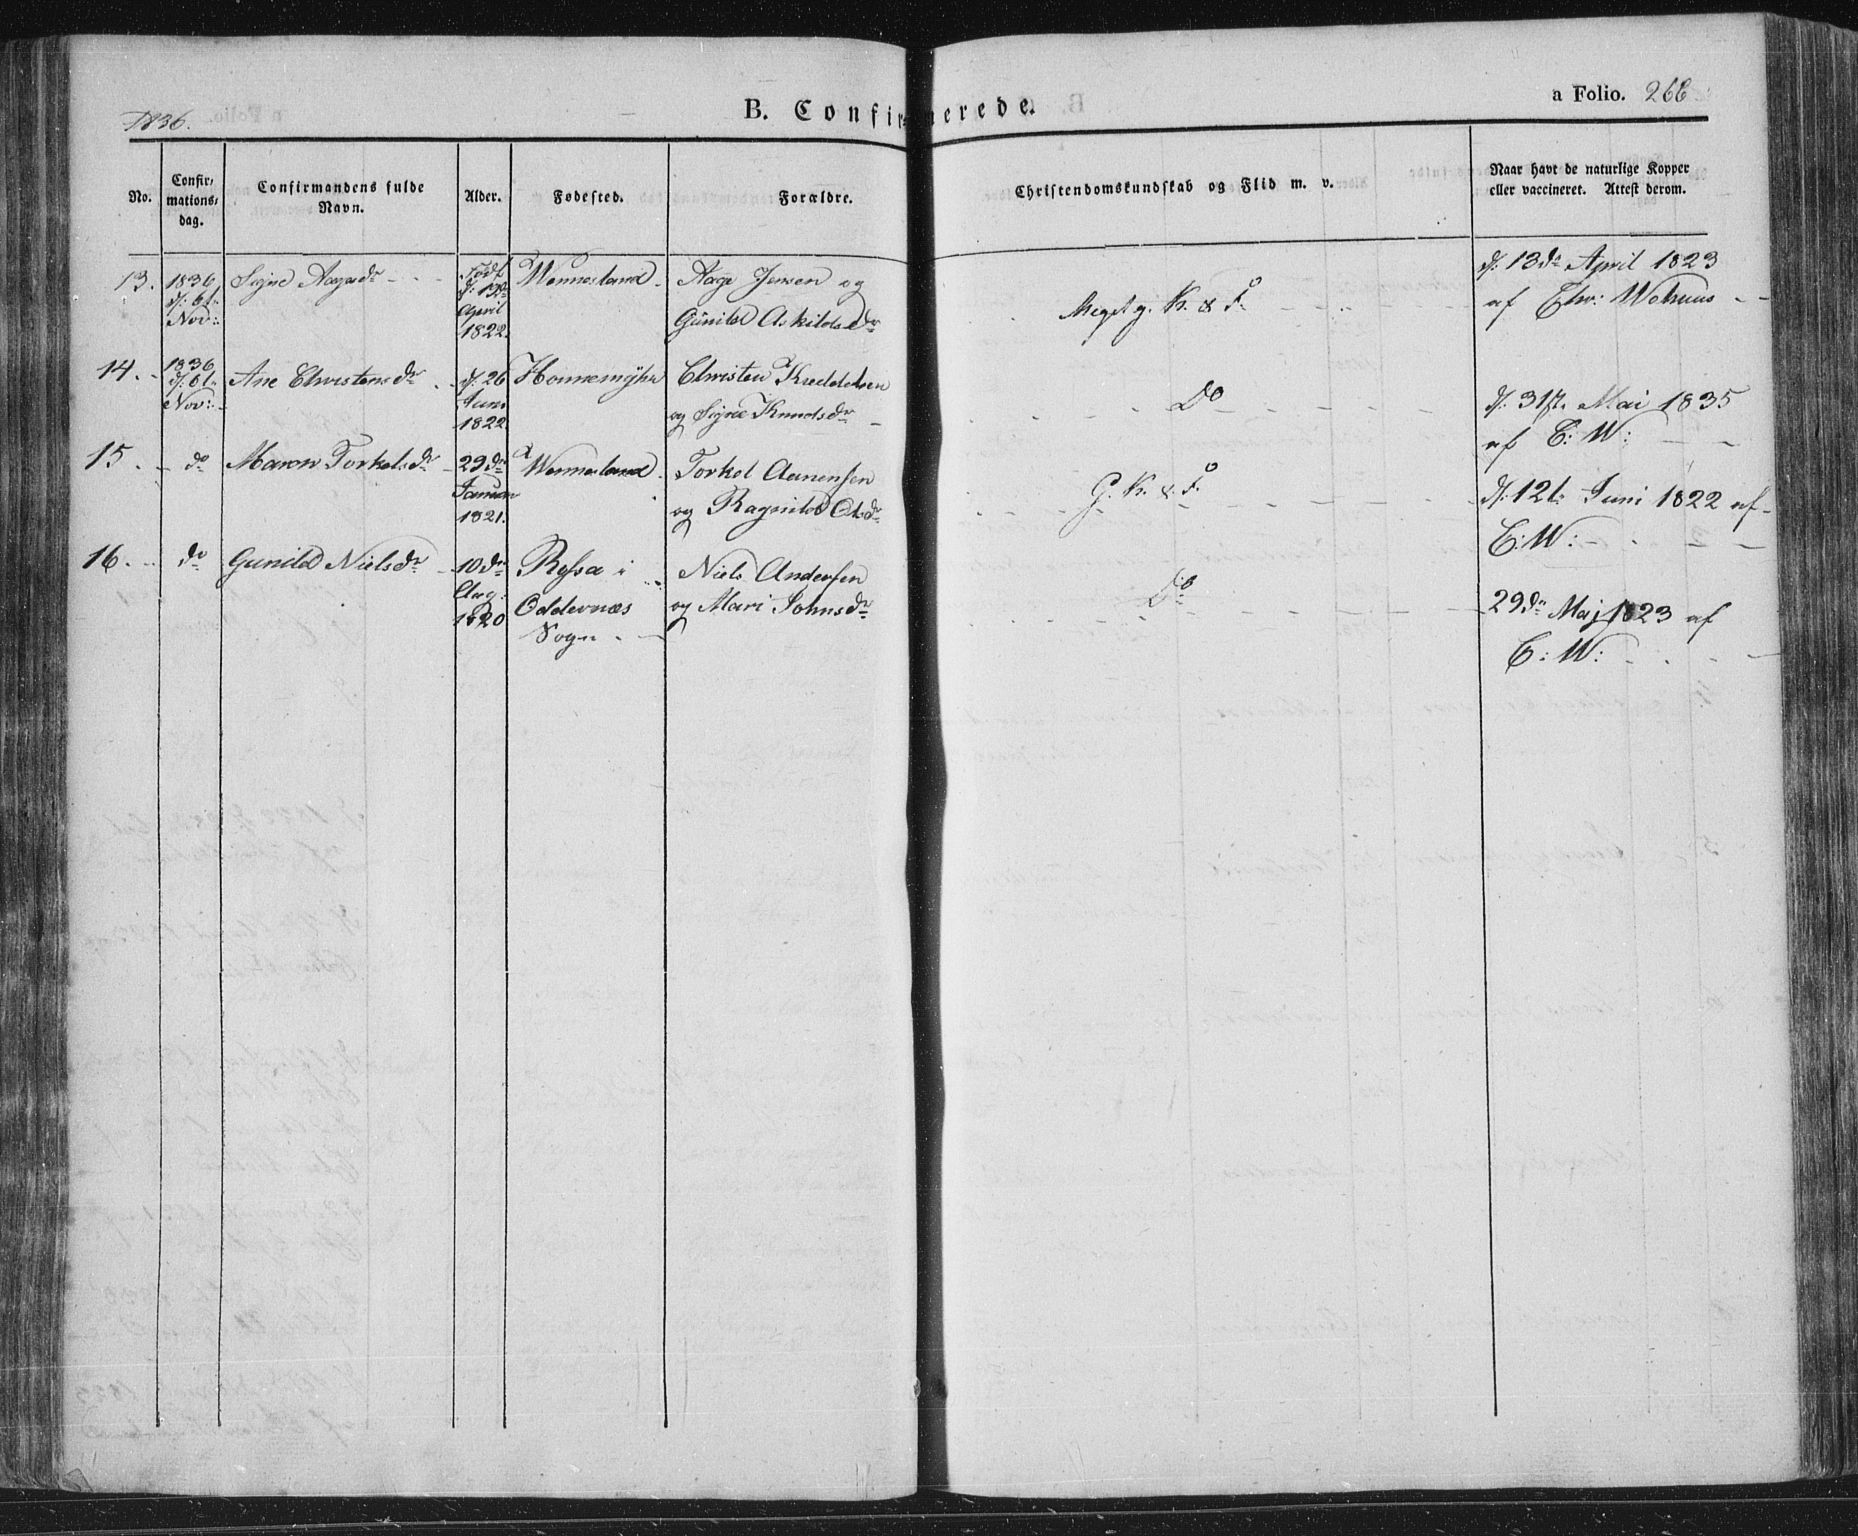 1836.
B. Confirmerede.
a Folio. 266
No.
Confir-
mations-
dag.
Confirmandens fulde
Navn.
Alder.
Fødested.
Forældre.
Christendomskundskab og Flid m. v.
Naar havt de naturlige Kopper
eller vaccineret. Attest derom.
13.
1836
d: 6t:
Nov:
Signe Aagesdr
Født
d: 13de
April
1822.
Wennesland
Aage Jensen og
Gunild Askildsdr
Meget g. K. & F.
d: 13de April 1823
af Chr: Wehuus
14.
1836
d: 6t:
Nov:
Ane Christensdr
d: 26
Juni
1822
Homemyhr
Christen
og Signe Knudsdr
Do
d: 31te Mai 1835
af C: W:
15.
do
Maren Torkelsdr
29de
Januar
1821.
Wennesland
Torkel Aanensen
og Ragnild Olsdr
G. K. & F.
d: 12t: Juni 1822 af
C: W:
16.
do
Gunild Nielsdr
10de
Aug:
1820
Rossa i
Oddernæs
Sogn
Niels Andersen
og Mari Johnsdr
Do
29de Maj 1823 af
C: W: